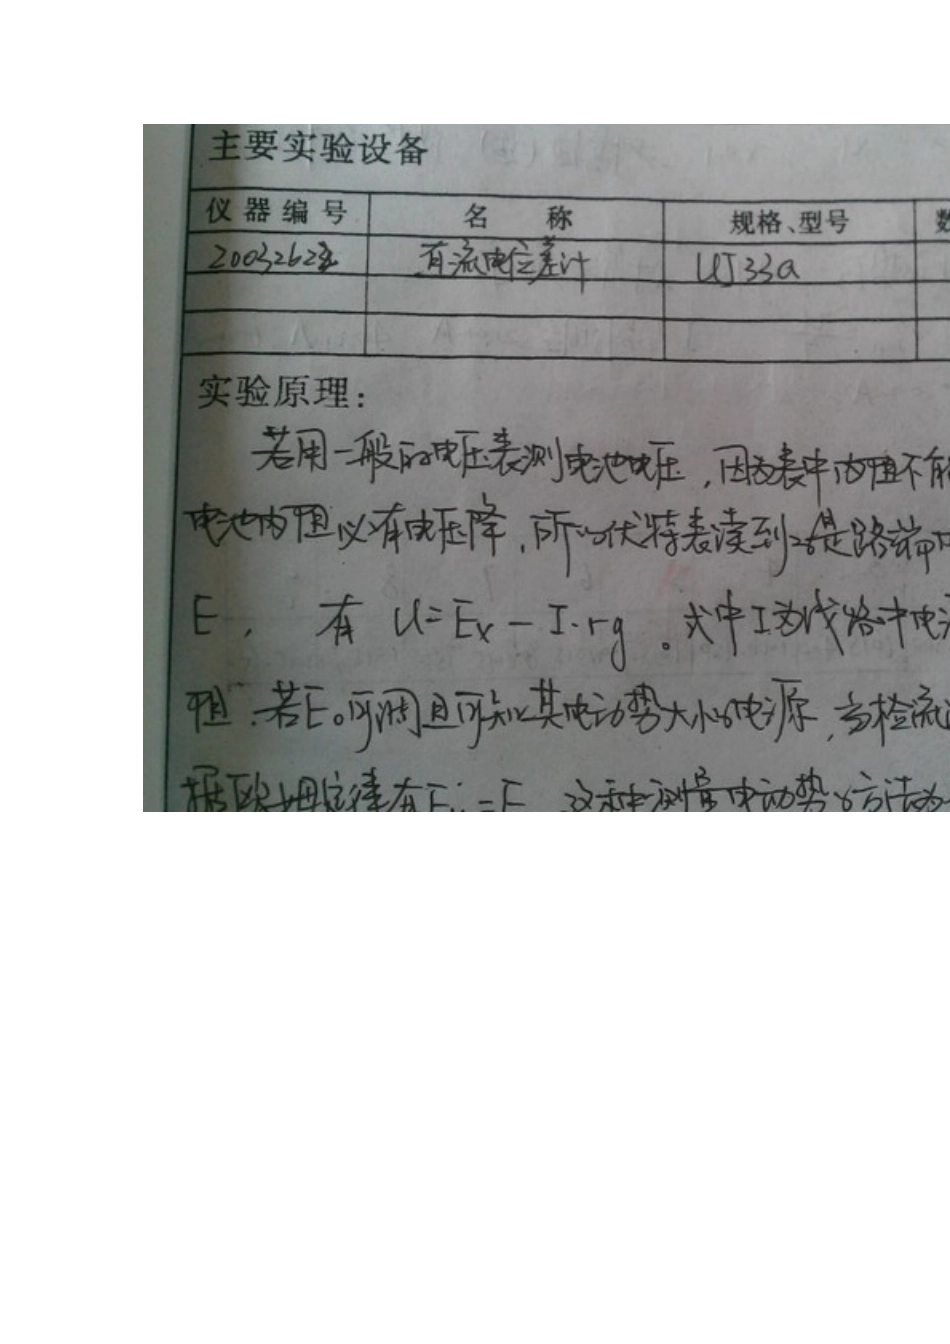 主要实验设备
仪器编号 名称 规格、型号 数
200326 直流电位差计 UJ33a
实验原理：
若用一般的电压表测电池电压，因为表中内阻不
电池内阻必有电压降，所以伏特表读到的是路端
E， 有 U=Ex-I·rg。式中I为 路中电
阻．若E。可调且可知其电动势大小的电源，当检流
据欧姆定律有E =E 这种测量电动势的方法